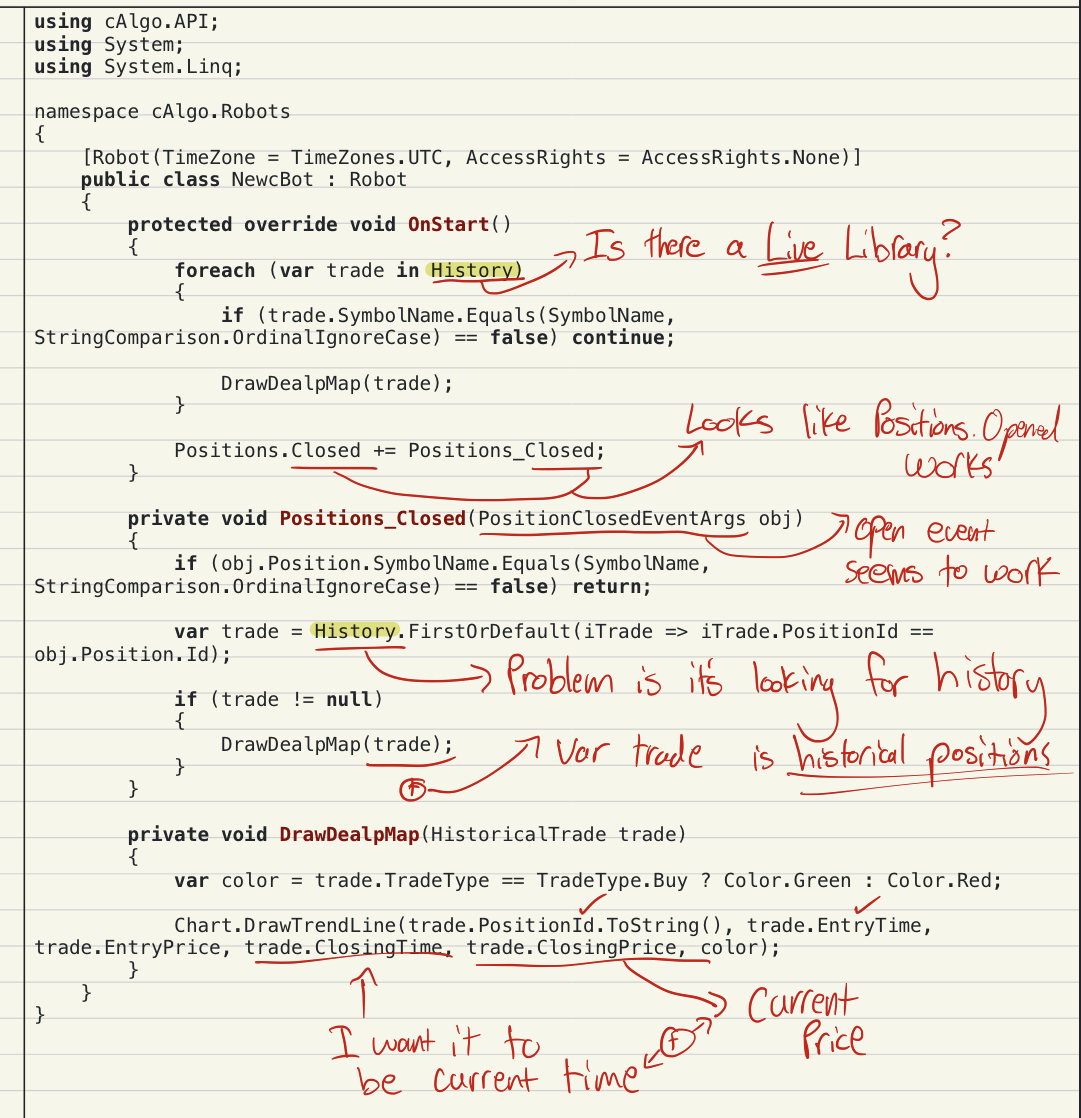 using cAlgo.API;
using System;
using System.Linq;
namespace cAlgo.Robots
{
[Robot(TimeZone = TimeZones.UTC, AccessRights = AccessRights.None)]
public class NewcBot : Robot
{
protected override void OnStart()
{
Is there a Live Library?
foreach (var trade in History)
{
if (trade.SymbolName.Equals(SymbolName,
StringComparison.OrdinalIgnoreCase) == false) continue;
DrawDealpMap(trade);
}
Looks like Positions.Opened
works
Positions.Closed += Positions_Closed;
}
private void Positions_Closed(PositionClosedEventArgs obj)
open event
seems to work
{
if (obj.Position.SymbolName.Equals(SymbolName,
StringComparison.OrdinalIgnoreCase) == false) return;
var trade = History.FirstOrDefault(iTrade => iTrade.PositionId ==
obj.Position.Id);
Problem is it's looking for history
if (trade != null)
{
DrawDealpMap(trade);
Var trade is historical positions
}
}
private void DrawDealpMap(HistoricalTrade trade)
{
var color = trade.TradeType == TradeType.Buy ? Color.Green : Color.Red;
Chart.DrawTrendLine(trade.PositionId.ToString(), trade.EntryTime,
trade.EntryPrice, trade.ClosingTime, trade.ClosingPrice, color);
}
}
}
Current
Price
I want it to
be current time